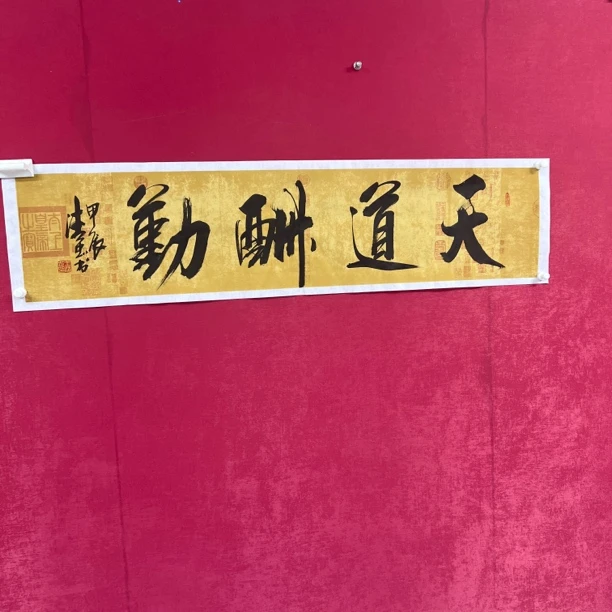 天道酬勤
甲辰
书